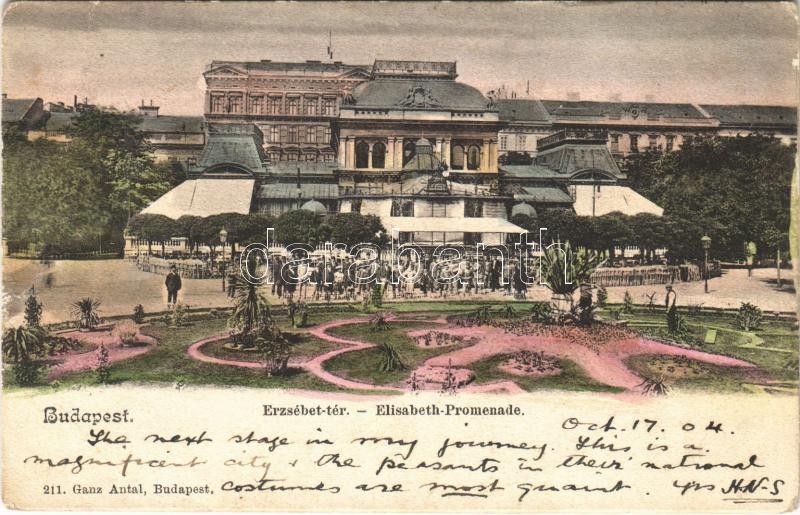 darabanth
Budapest.
Erzsébet-tér. – Elisabeth-Promenade.
Oct. 17. 04.
The next stage in my journey. This is a
magnificent city & the peasants in their national
211. Ganz Antal, Budapest. costumes are most quaint. Yrs H.N-S